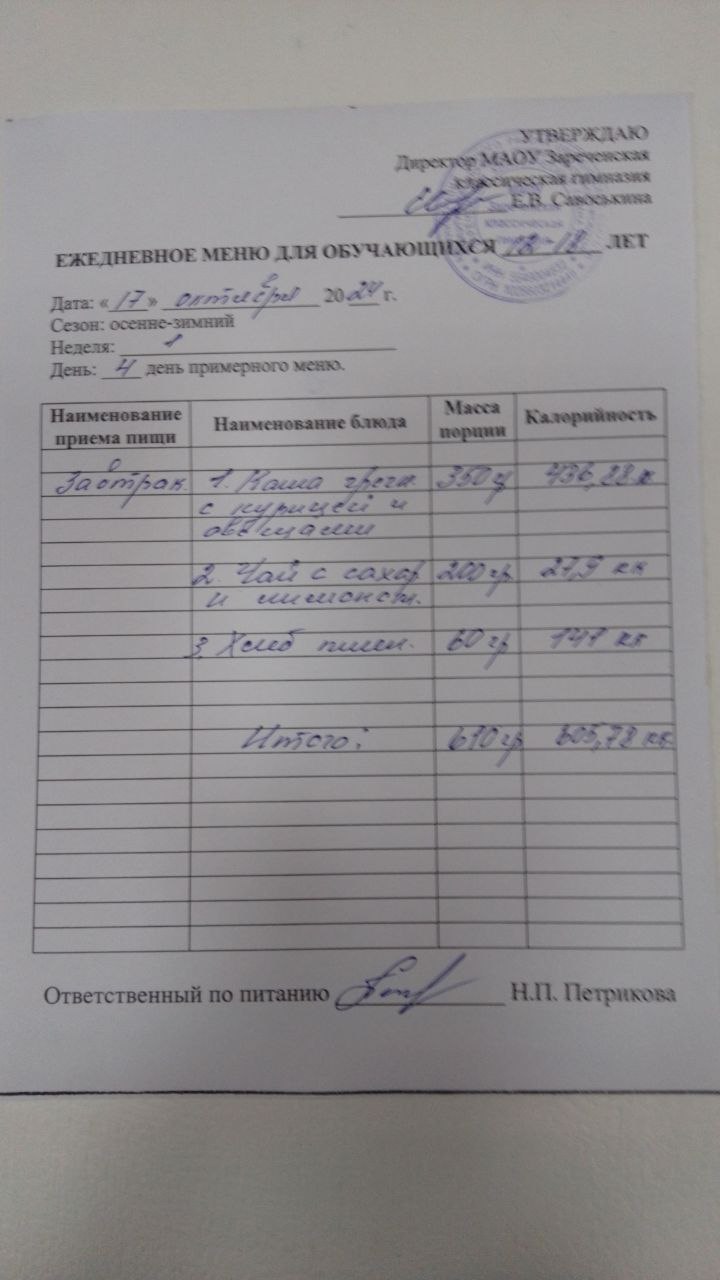 УТВЕРЖДАЮ
Директор МАОУ Зареченская
классическая гимназия
Е.В. Савоськина
ЕЖЕДНЕВНОЕ МЕНЮ ДЛЯ ОБУЧАЮЩИХСЯ 12-18 ЛЕТ
Дата: «17» октября 2024 г.
Сезон: осенне-зимний
Неделя: 1
День: 4 день примерного меню.
Наименование приема пищи Наименование блюда Масса порции Калорийность
Завтрак. 1. Каша гречн. 350 гр 436,88 к
с курицей и
овощами
2. Чай с сахар 200 гр 27,9 кк
и лимоном.
3. Хлеб пшен. 60 гр 141 кк
Итого: 610 гр 605,78 кк
Ответственный по питанию Н.П. Петрикова